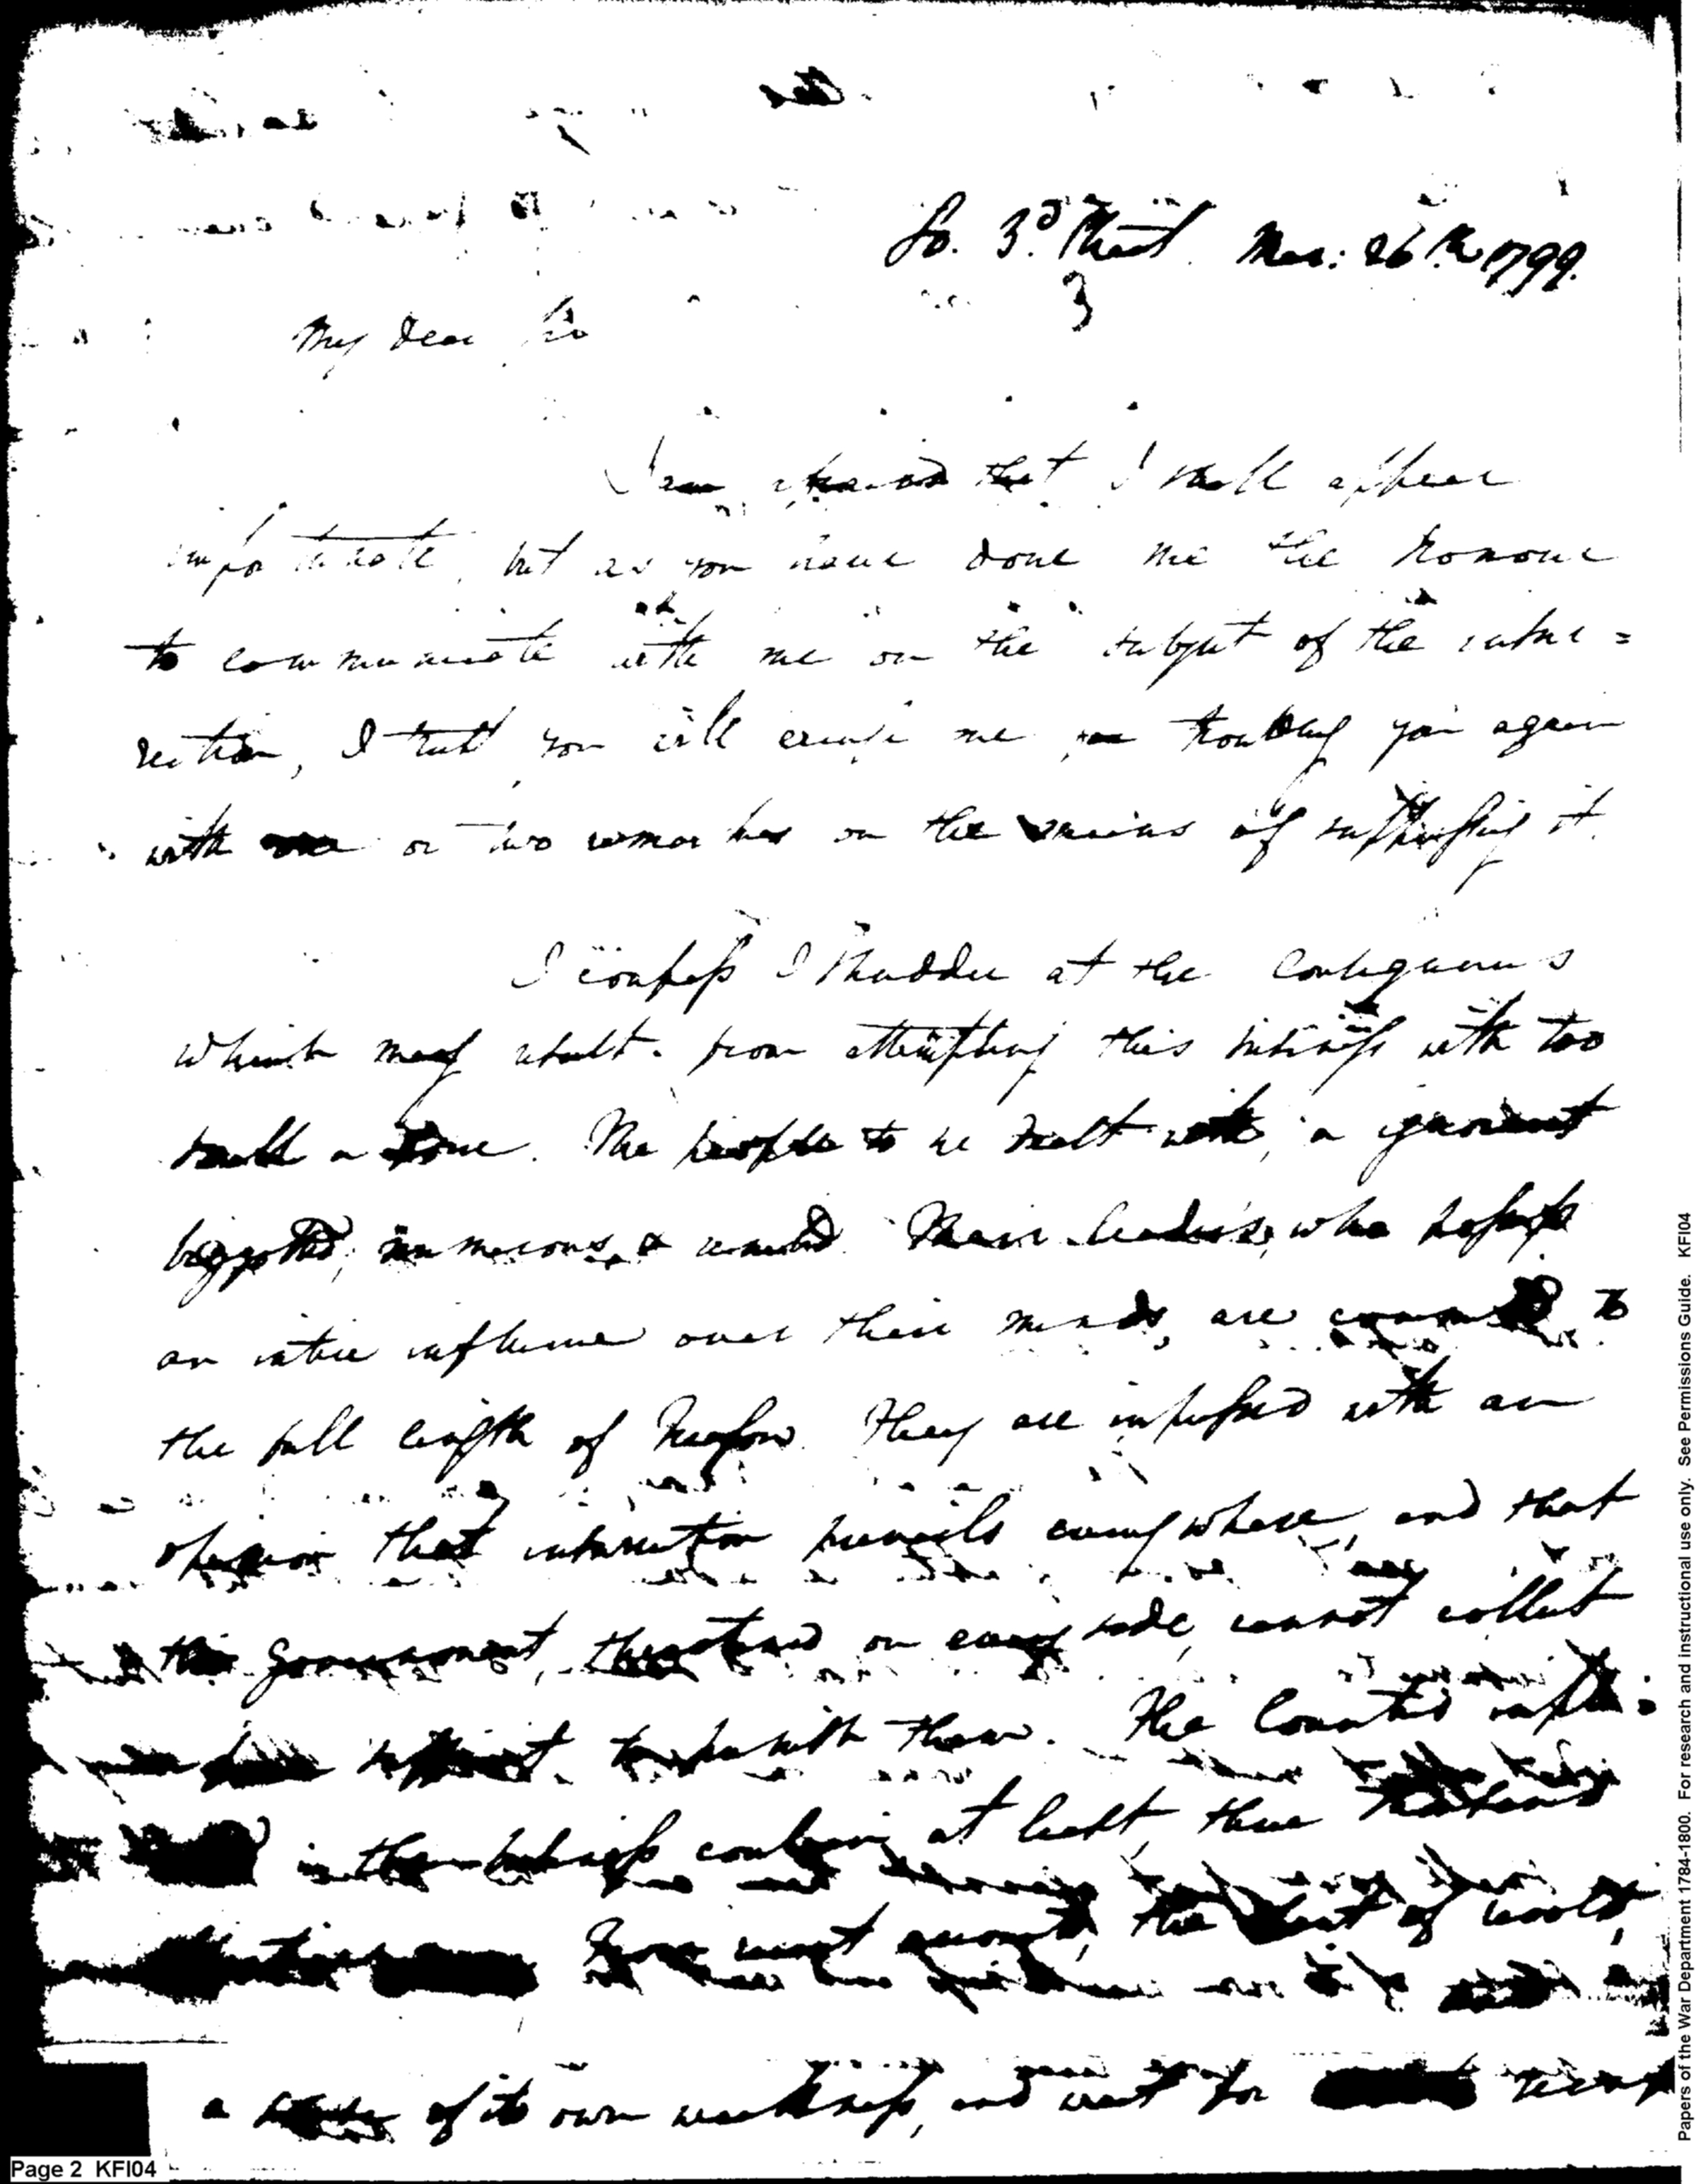 So. 3d. Street. Mar: 26th 1799.
3
My Dear Sir
I am afraid that I shall appear
importunate, but as you have done me the honour
to communicate with me on the subject of the insur=
rection, I trust you will excuse me for troubling you again
with one or two remarks on the means of suppressing it.
I confess I shudder at the consequences
which may result from attempting this business with too
small a force. The people to be dealt with, are ignorant
bigotted, numerous & armed. Their leaders, who possess
an entire influence over their minds, are committed to
the full length of Treason. They are impressed with an
opinion that insurrection prevails every where, and that
the government, threatened on every side, cannot collect
sufficient to punish them. The Counties
in the business contain at least three thousand
the of revolt,
a of its own weakness, and wait for
Papers of the War Department 1784-1800. For research and instructional use only. See Permissions Guide. KFI04
Page 2 KFI04